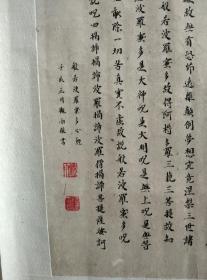 故無有恐怖遠離顛倒夢想究竟涅槃三世諸
般若波羅蜜多故得阿耨多羅三藐三菩提故知
波羅蜜多是大神呪是大明呪是無上呪是無等
能除一切苦真實不虛故說般若波羅蜜多呪
說呪曰揭諦揭諦波羅揭諦波羅僧揭諦菩提薩婆訶
般若波羅蜜多心經
月 敬書